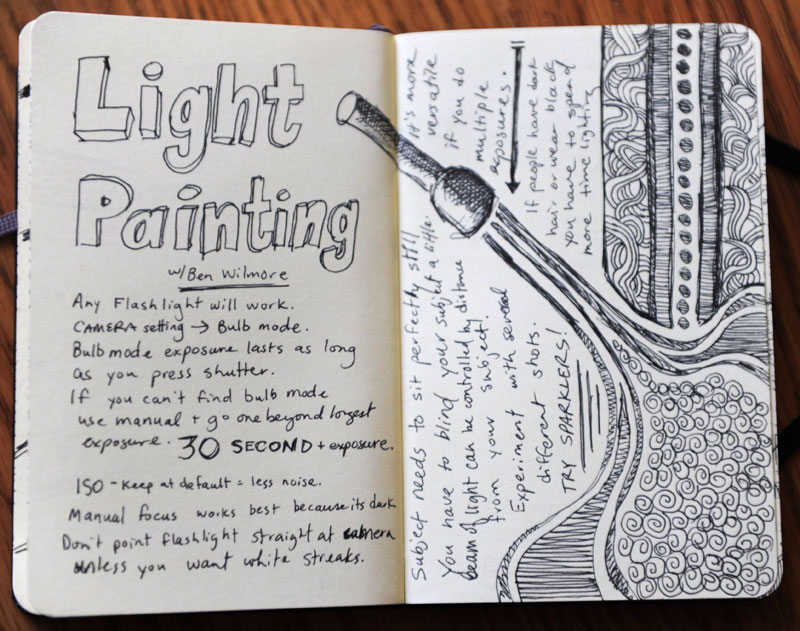 Light
Painting
w/Ben Wilmore
Any Flashlight will work.
CAMERA setting → Bulb mode.
Bulb mode exposure lasts as long
as you press shutter.
If you can't find bulb mode
use manual + go one beyond longest
exposure. 30 SECOND + exposure.
ISO - Keep at default = less noise.
Manual focus works best because its dark
Don't point flashlight straight at camera
unless you want white streaks.
Subject needs to sit perfectly still
You have to blind your subject a little.
beam of light can be controlled by distance
from your subject!
Experiment with several
different shots.
TRY SPARKLERS!
It's more
versatile
if you do
multiple
exposures.
If people have dark
hair or wear black
you have to spend
more time lighting